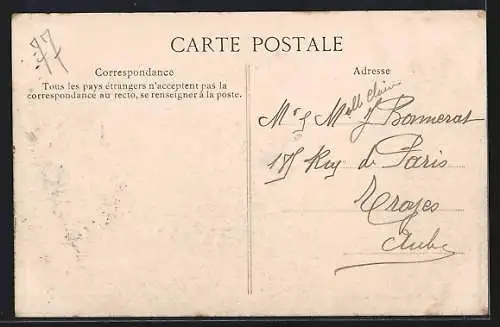 77
CARTE POSTALE
Correspondance
Tous les pays étrangers n'acceptent pas la
correspondance au recto, se renseigner à la poste.
Adresse
Melle Claire
Bonnerat
de Paris
Troyes
Aube